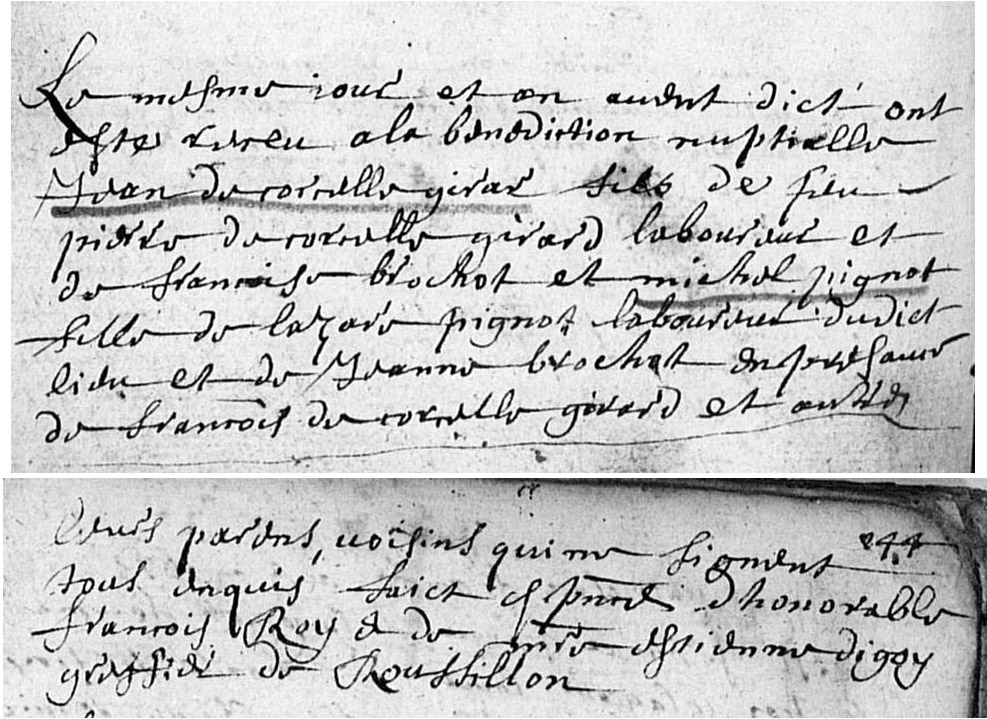 Le mesme iour et an avent dict ont
este receu a la benediction nuptialle
Jean de corcelle girar fils de feu
pierre de corcelle girard laboureur et
de francoise brochot et michel pignot
fille de lazare pignot laboureur dudict
lieu et de Jeanne brochot en presance
de francois de corcelle girard et autres
leurs parens, voisins qui ne signent
244
tous enquis faict es pnce d honorable
francois Roy e de mre estienne digoy
greffier de Roussillon